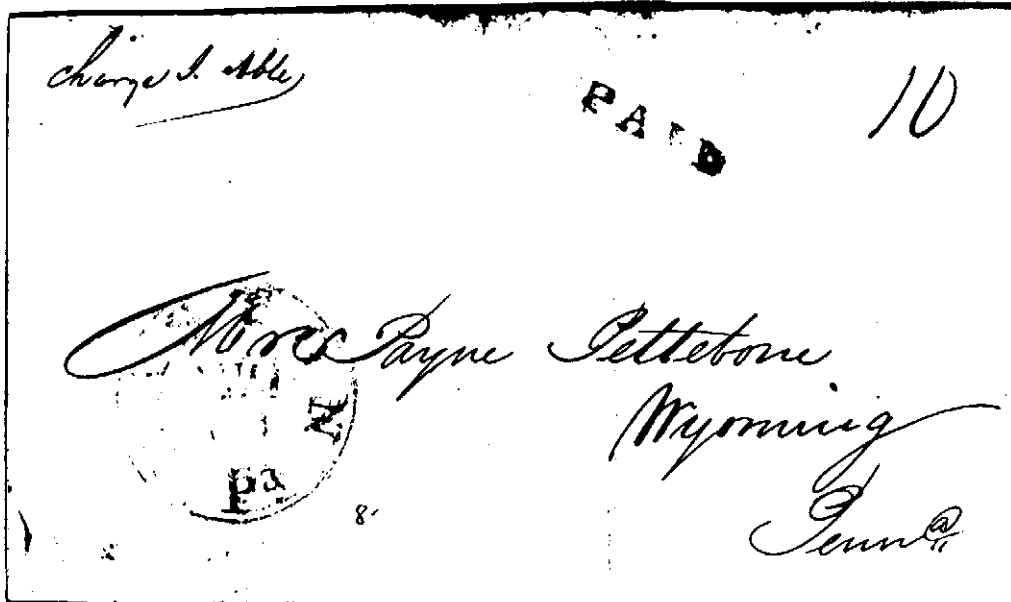 charge J. Able
PAID
10
Mrs Payne Pettebone
Wyoming
Penna
N
Pa
8